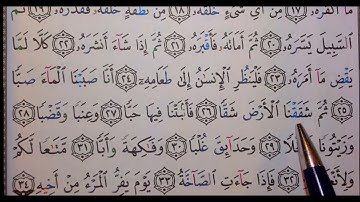 مَآ أَكْفَرَهُۥ ﴿١٧﴾ مِنْ أَىِّ شَىْءٍ خَلَقَهُۥ ﴿١٨﴾ مِن نُّطْفَةٍ خَلَقَهُۥ فَقَدَّرَهُۥ ﴿١٩﴾ ثُمَّ
ٱلسَّبِيلَ يَسَّرَهُۥ ﴿٢٠﴾ ثُمَّ أَمَاتَهُۥ فَأَقْبَرَهُۥ ﴿٢١﴾ ثُمَّ إِذَا شَآءَ أَنشَرَهُۥ ﴿٢٢﴾ كَلَّا لَمَّا
يَقْضِ مَآ أَمَرَهُۥ ﴿٢٣﴾ فَلْيَنظُرِ ٱلْإِنسَٰنُ إِلَىٰ طَعَامِهِۦٓ ﴿٢٤﴾ أَنَّا صَبَبْنَا ٱلْمَآءَ صَبًّا
﴿٢٥﴾ ثُمَّ شَقَقْنَا ٱلْأَرْضَ شَقًّا ﴿٢٦﴾ فَأَنۢبَتْنَا فِيهَا حَبًّا ﴿٢٧﴾ وَعِنَبًا وَقَضْبًا ﴿٢٨﴾
وَزَيْتُونًا ﴿٢٩﴾ وَحَدَآئِقَ غُلْبًا ﴿٣٠﴾ وَفَٰكِهَةً وَأَبًّا ﴿٣١﴾ مَّتَٰعًا لَّكُمْ
﴿٣٢﴾ فَإِذَا جَآءَتِ ٱلصَّآخَّةُ ﴿٣٣﴾ يَوْمَ يَفِرُّ ٱلْمَرْءُ مِنْ أَخِيهِ ﴿٣٤﴾